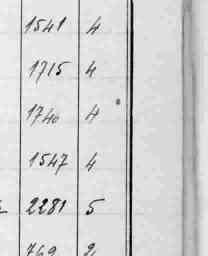 1541 4
1715 4
1740 4
1547 4
2281 5
769 2